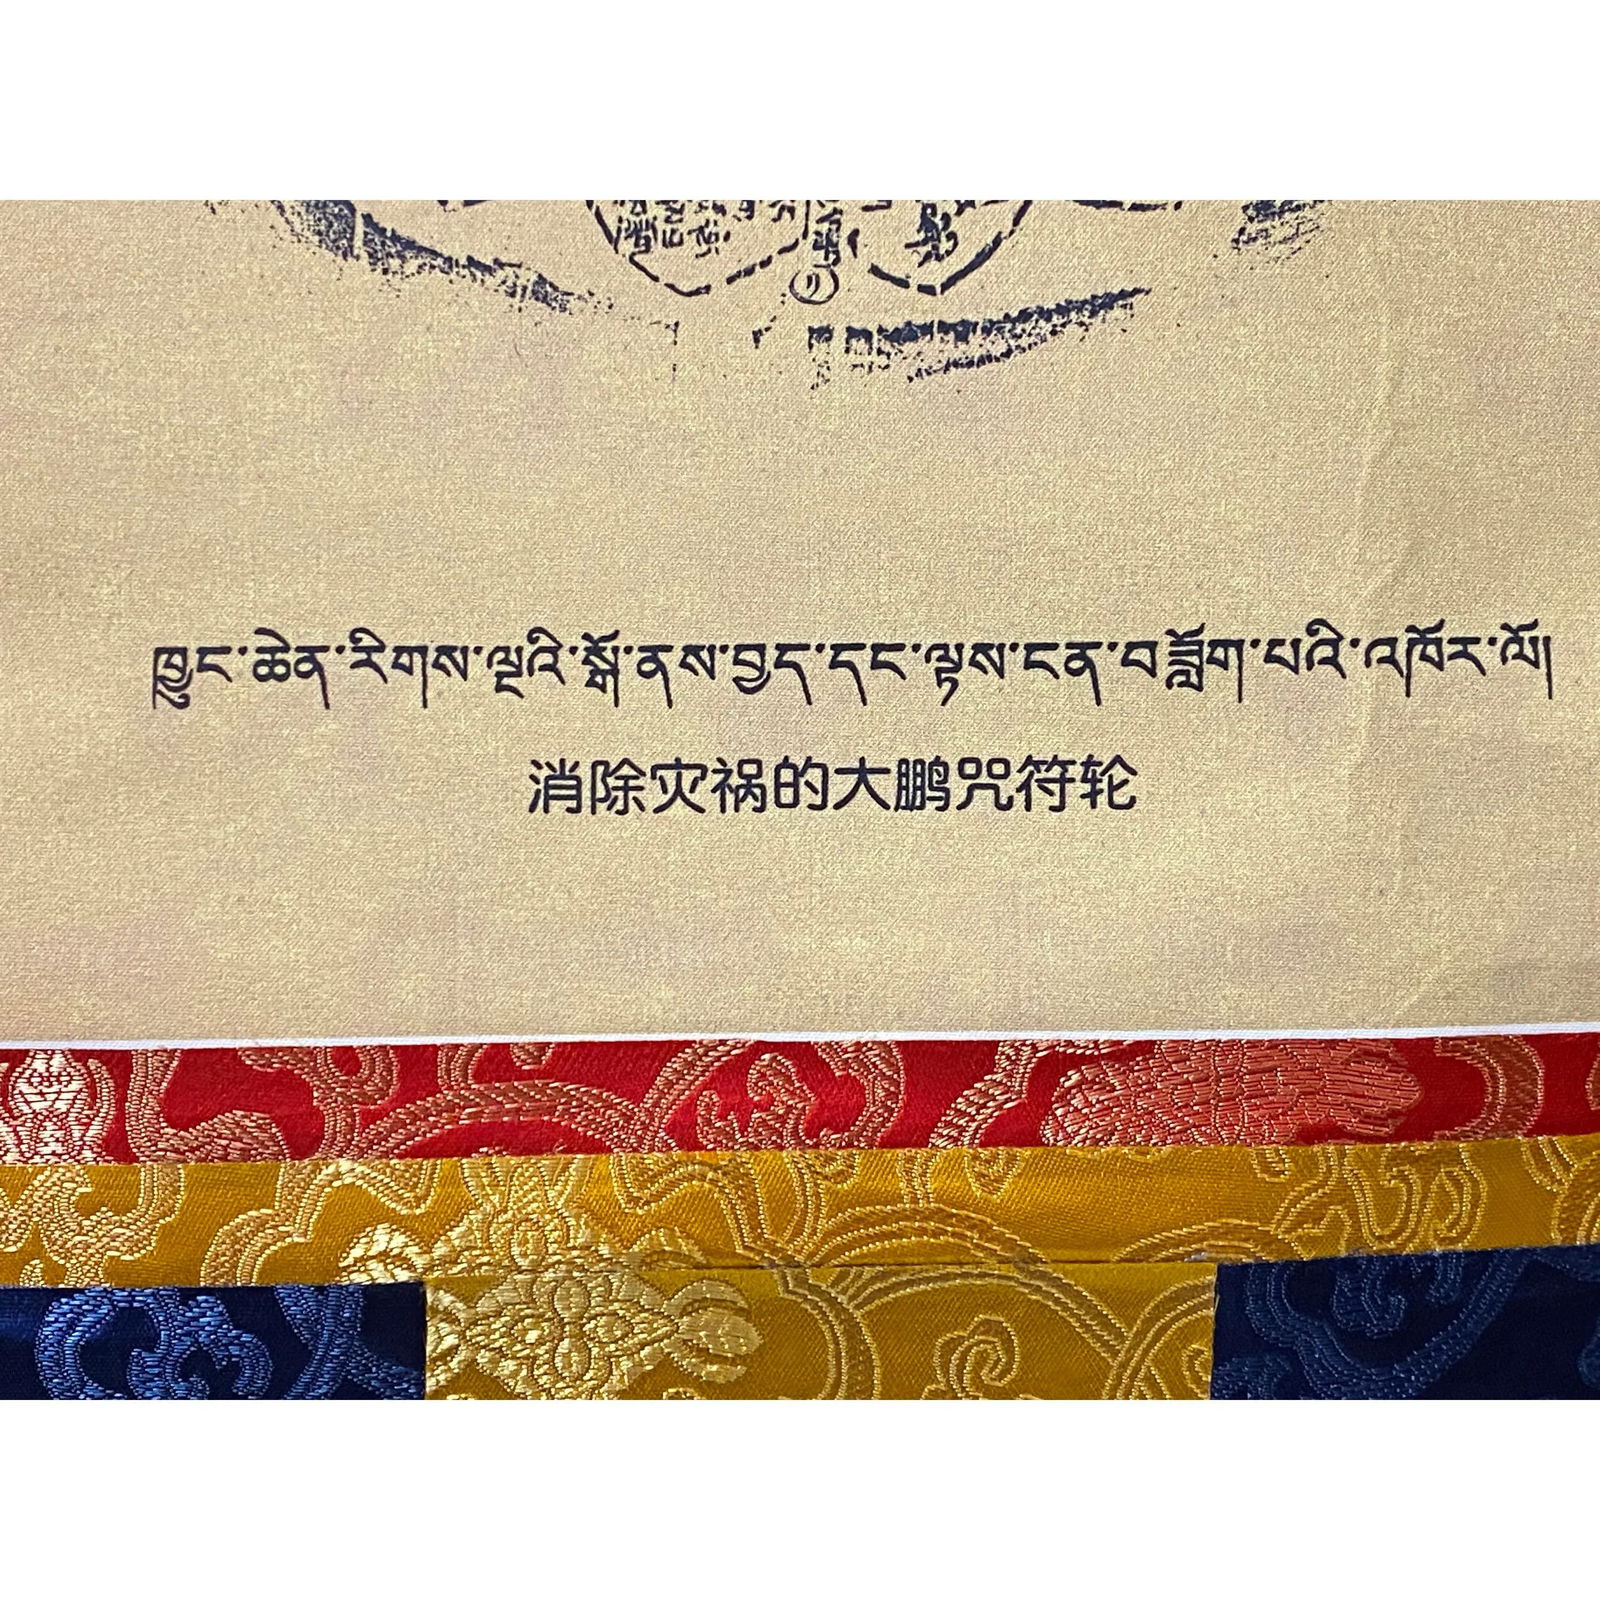 ཁྱུང་ཆེན་རིགས་ལྔའི་སྒོ་ནས་བྱད་དང་ལྟས་ངན་བཟློག་པའི་འཁོར་ལོ།
消除灾祸的大鹏咒符轮